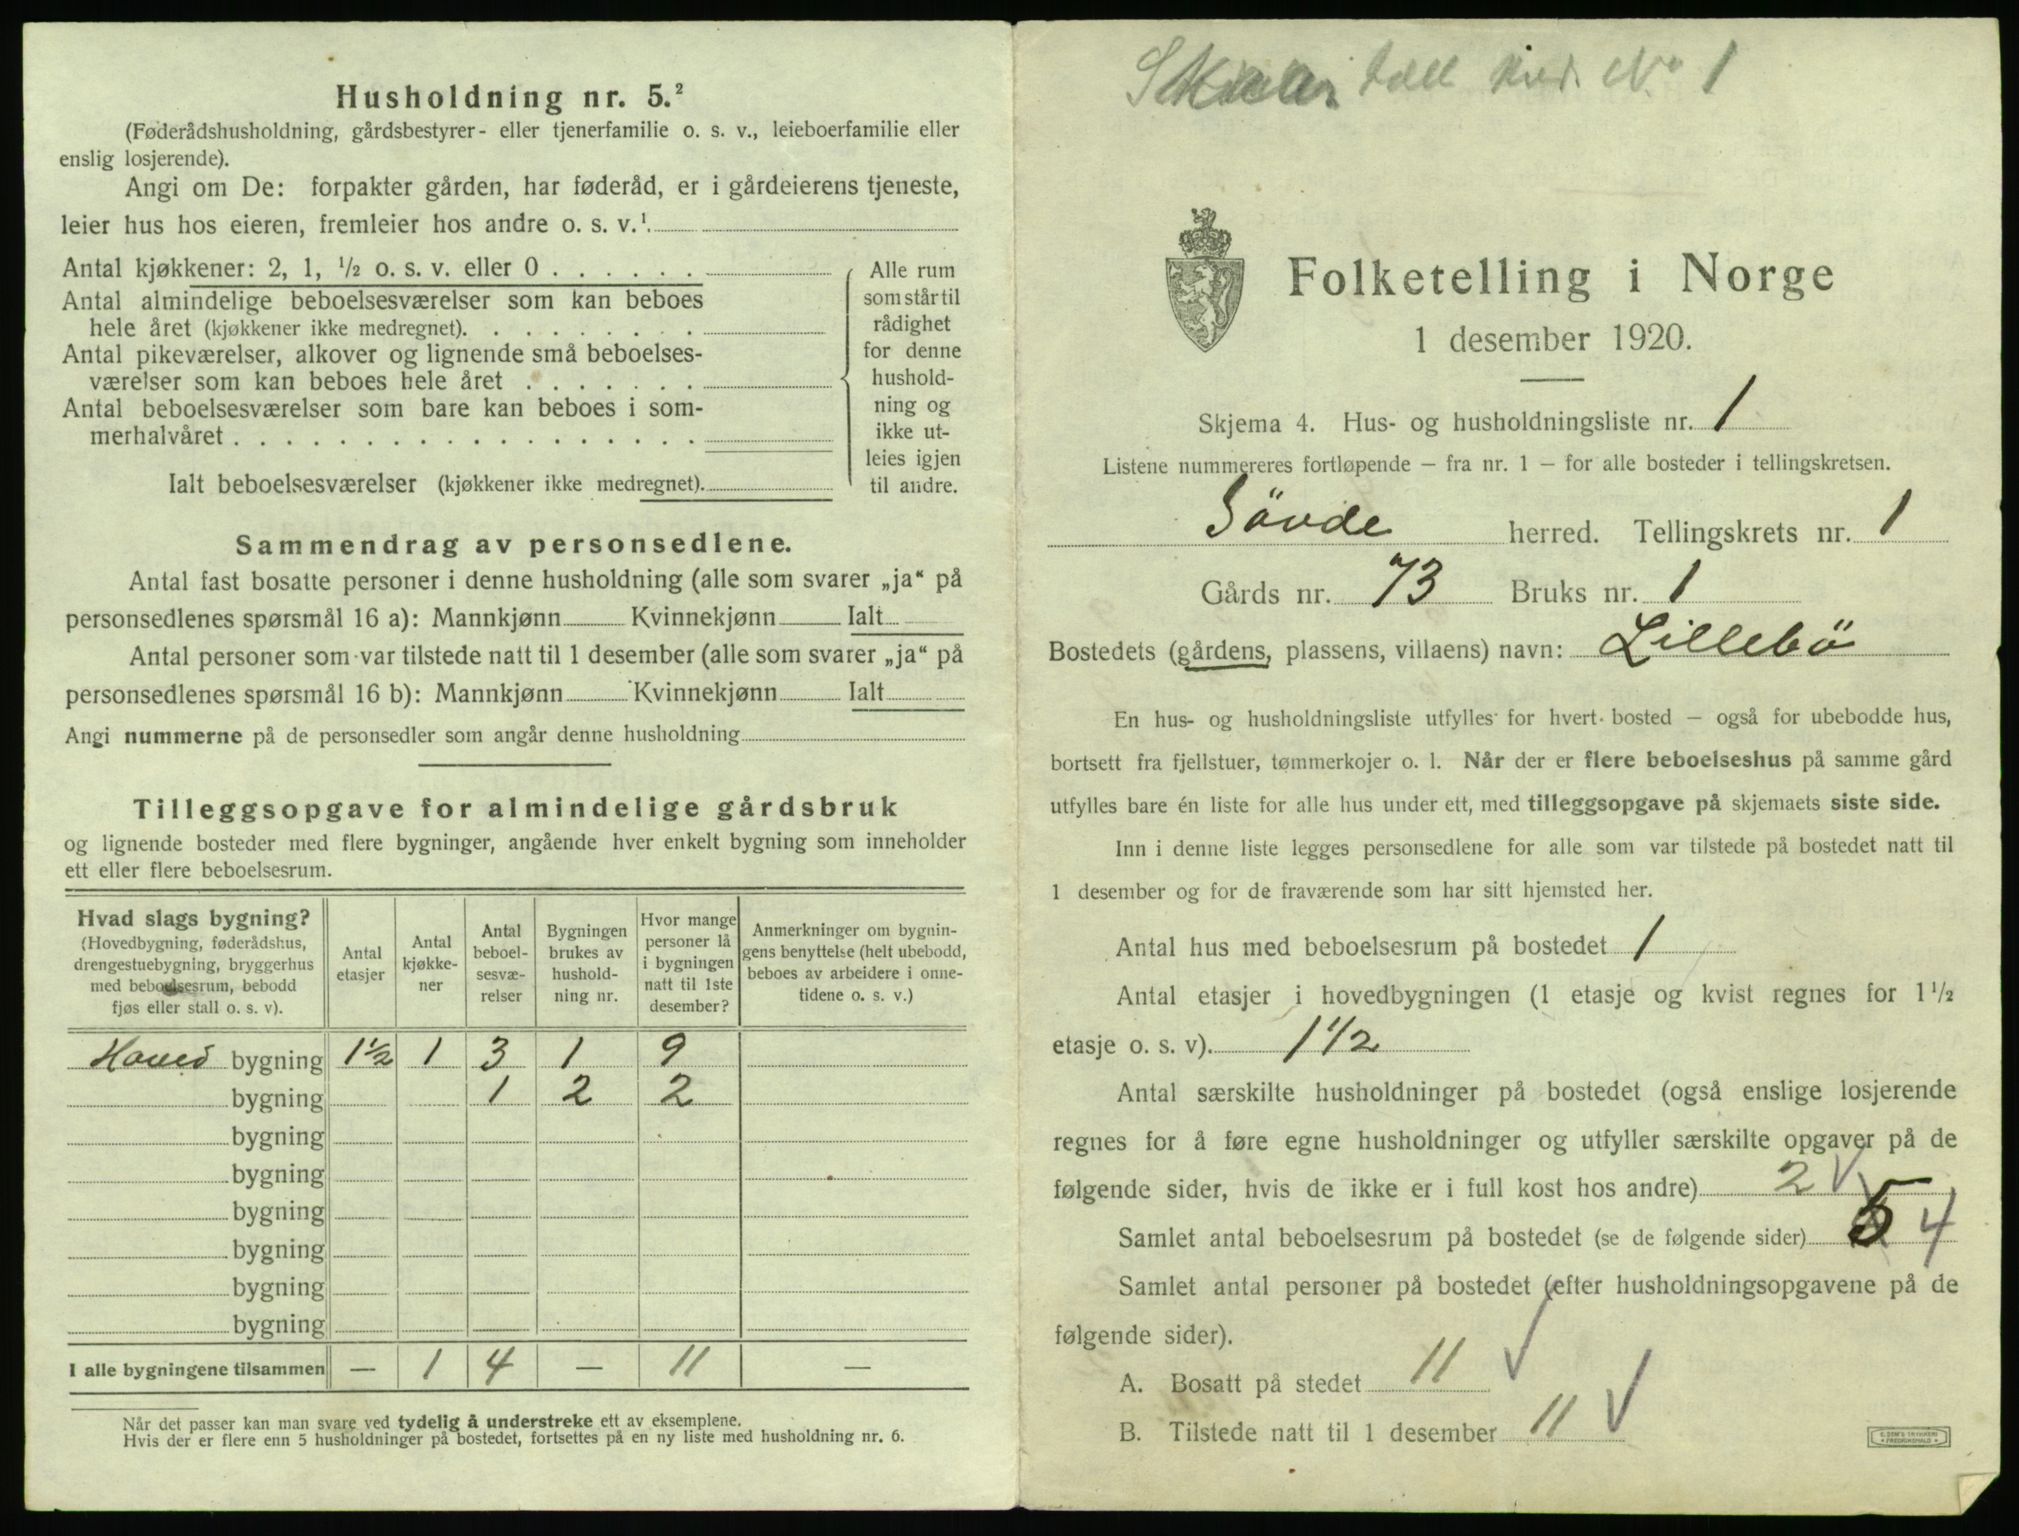 Husholdning nr. 5.²
(Føderådshusholdning, gårdsbestyrer- eller tjenerfamilie o. s. v., leieboerfamilie eller
enslig losjerende).
Angi om De: forpakter gården, har føderåd, er i gårdeierens tjeneste,
leier hus hos eieren, fremleier hos andre o. s. v.¹
Antal kjøkkener: 2, 1, ½ o. s. v. eller 0 . . . . . .
Antal almindelige beboelsesværelser som kan beboes
hele året (kjøkkener ikke medregnet). . . . . . . . .
Antal pikeværelser, alkover og lignende små beboelses-
værelser som kan beboes hele året . . . . . . .
Antal beboelsesværelser som bare kan beboes i som-
merhalvåret . . . . . . . . . . . . . . . . . .
Ialt beboelsesværelser (kjøkkener ikke medregnet).
Alle rum
som står til
rådighet
for denne
hushold-
ning og
ikke ut-
leies igjen
til andre.
Sammendrag av personsedlene.
Antal fast bosatte personer i denne husholdning (alle som svarer „ja“ på
personsedlenes spørsmål 16 a): Mannkjønn Kvinnekjønn Ialt
Antal personer som var tilstede natt til 1 desember (alle som svarer „ja“ på
personsedlenes spørsmål 16 b): Mannkjønn Kvinnekjønn Ialt
Angi nummerne på de personsedler som angår denne husholdning
Tilleggsopgave for almindelige gårdsbruk
og lignende bosteder med flere bygninger, angående hver enkelt bygning som inneholder
ett eller flere beboelsesrum.
Hvad slags bygning?
(Hovedbygning, føderådshus,
drengestuebygning, bryggerhus
med beboelsesrum, bebodd
fjøs eller stall o. s. v).
Antal
etasjer
Antal
kjøkke-
ner
Antal
beboel-
sesvæ-
relser
Bygningen
brukes av
hushold-
ning nr.
Hvor mange
personer lå
i bygningen
natt til 1ste
desember?
Anmerkninger om bygnin-
gens benyttelse (helt ubebodd,
beboes av arbeidere i onne-
tidene o. s. v.)
Hoved bygning 1½ 1 3 1 9
bygning 1 2 2
bygning
bygning
bygning
bygning
bygning
bygning
I alle bygningene tilsammen — 1 4 — 11 —
Når det passer kan man svare ved tydelig å understreke ett av eksemplene.
Hvis der er flere enn 5 husholdninger på bostedet, fortsettes på en ny liste med husholdning nr. 6.
No 1
Folketelling i Norge
1 desember 1920.
Skjema 4. Hus- og husholdningsliste nr. 1
Listene nummereres fortløpende – fra nr. 1 – for alle bosteder i tellingskretsen.
Sövde herred. Tellingskrets nr. 1
Gårds nr. 73 Bruks nr. 1
Bostedets (gårdens, plassens, villaens) navn: Lillebö
En hus- og husholdningsliste utfylles for hvert bosted – også for ubebodde hus,
bortsett fra fjellstuer, tømmerkojer o. l. Når der er flere beboelseshus på samme gård
utfylles bare én liste for alle hus under ett, med tilleggsopgave på skjemaets siste side.
Inn i denne liste legges personsedlene for alle som var tilstede på bostedet natt til
1 desember og for de fraværende som har sitt hjemsted her.
Antal hus med beboelsesrum på bostedet 1
Antal etasjer i hovedbygningen (1 etasje og kvist regnes for 1½
etasje o. s. v). 1 1/2
Antal særskilte husholdninger på bostedet (også enslige losjerende
regnes for å føre egne husholdninger og utfyller særskilte opgaver på de
følgende sider, hvis de ikke er i full kost hos andre) 2 ✓
Samlet antal beboelsesrum på bostedet (se de følgende sider) 5 4
Samlet antal personer på bostedet (efter husholdningsopgavene på de
følgende sider).
A. Bosatt på stedet 11 ✓
B. Tilstede natt til 1 desember 11 ✓